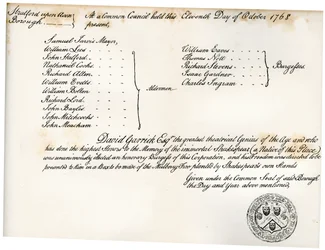 Stratford upon Avon
Borough
At a Common Council held this Eleventh Day of October 1768
present,
Samuel Jarvis Mayor,
William Eaves
John Stafford
Nathaniel Cooks
Richard Allen
William Evetts
William Bolton
Richard Lord
John Bayles
John Meacham
Aldermen
William Eaves
Thomas Nott
Richard Stevens
Isaac Gardner
Charles Ingram
Burgesses
David Garrick Esqr the greatest theatrical Genius of the Age and who
has done the highest Honor to the Memory of the immortal Shakespear (a Native of this Place)
was unanimously elected an honorary Burgess of this Corporation, and his Freedom was directed to be
presented to him in a Box to be made of the Mulberry Tree planted by Shakespears own Hands
Given under the Common Seal of said Borough
the Day and Year above mentioned.